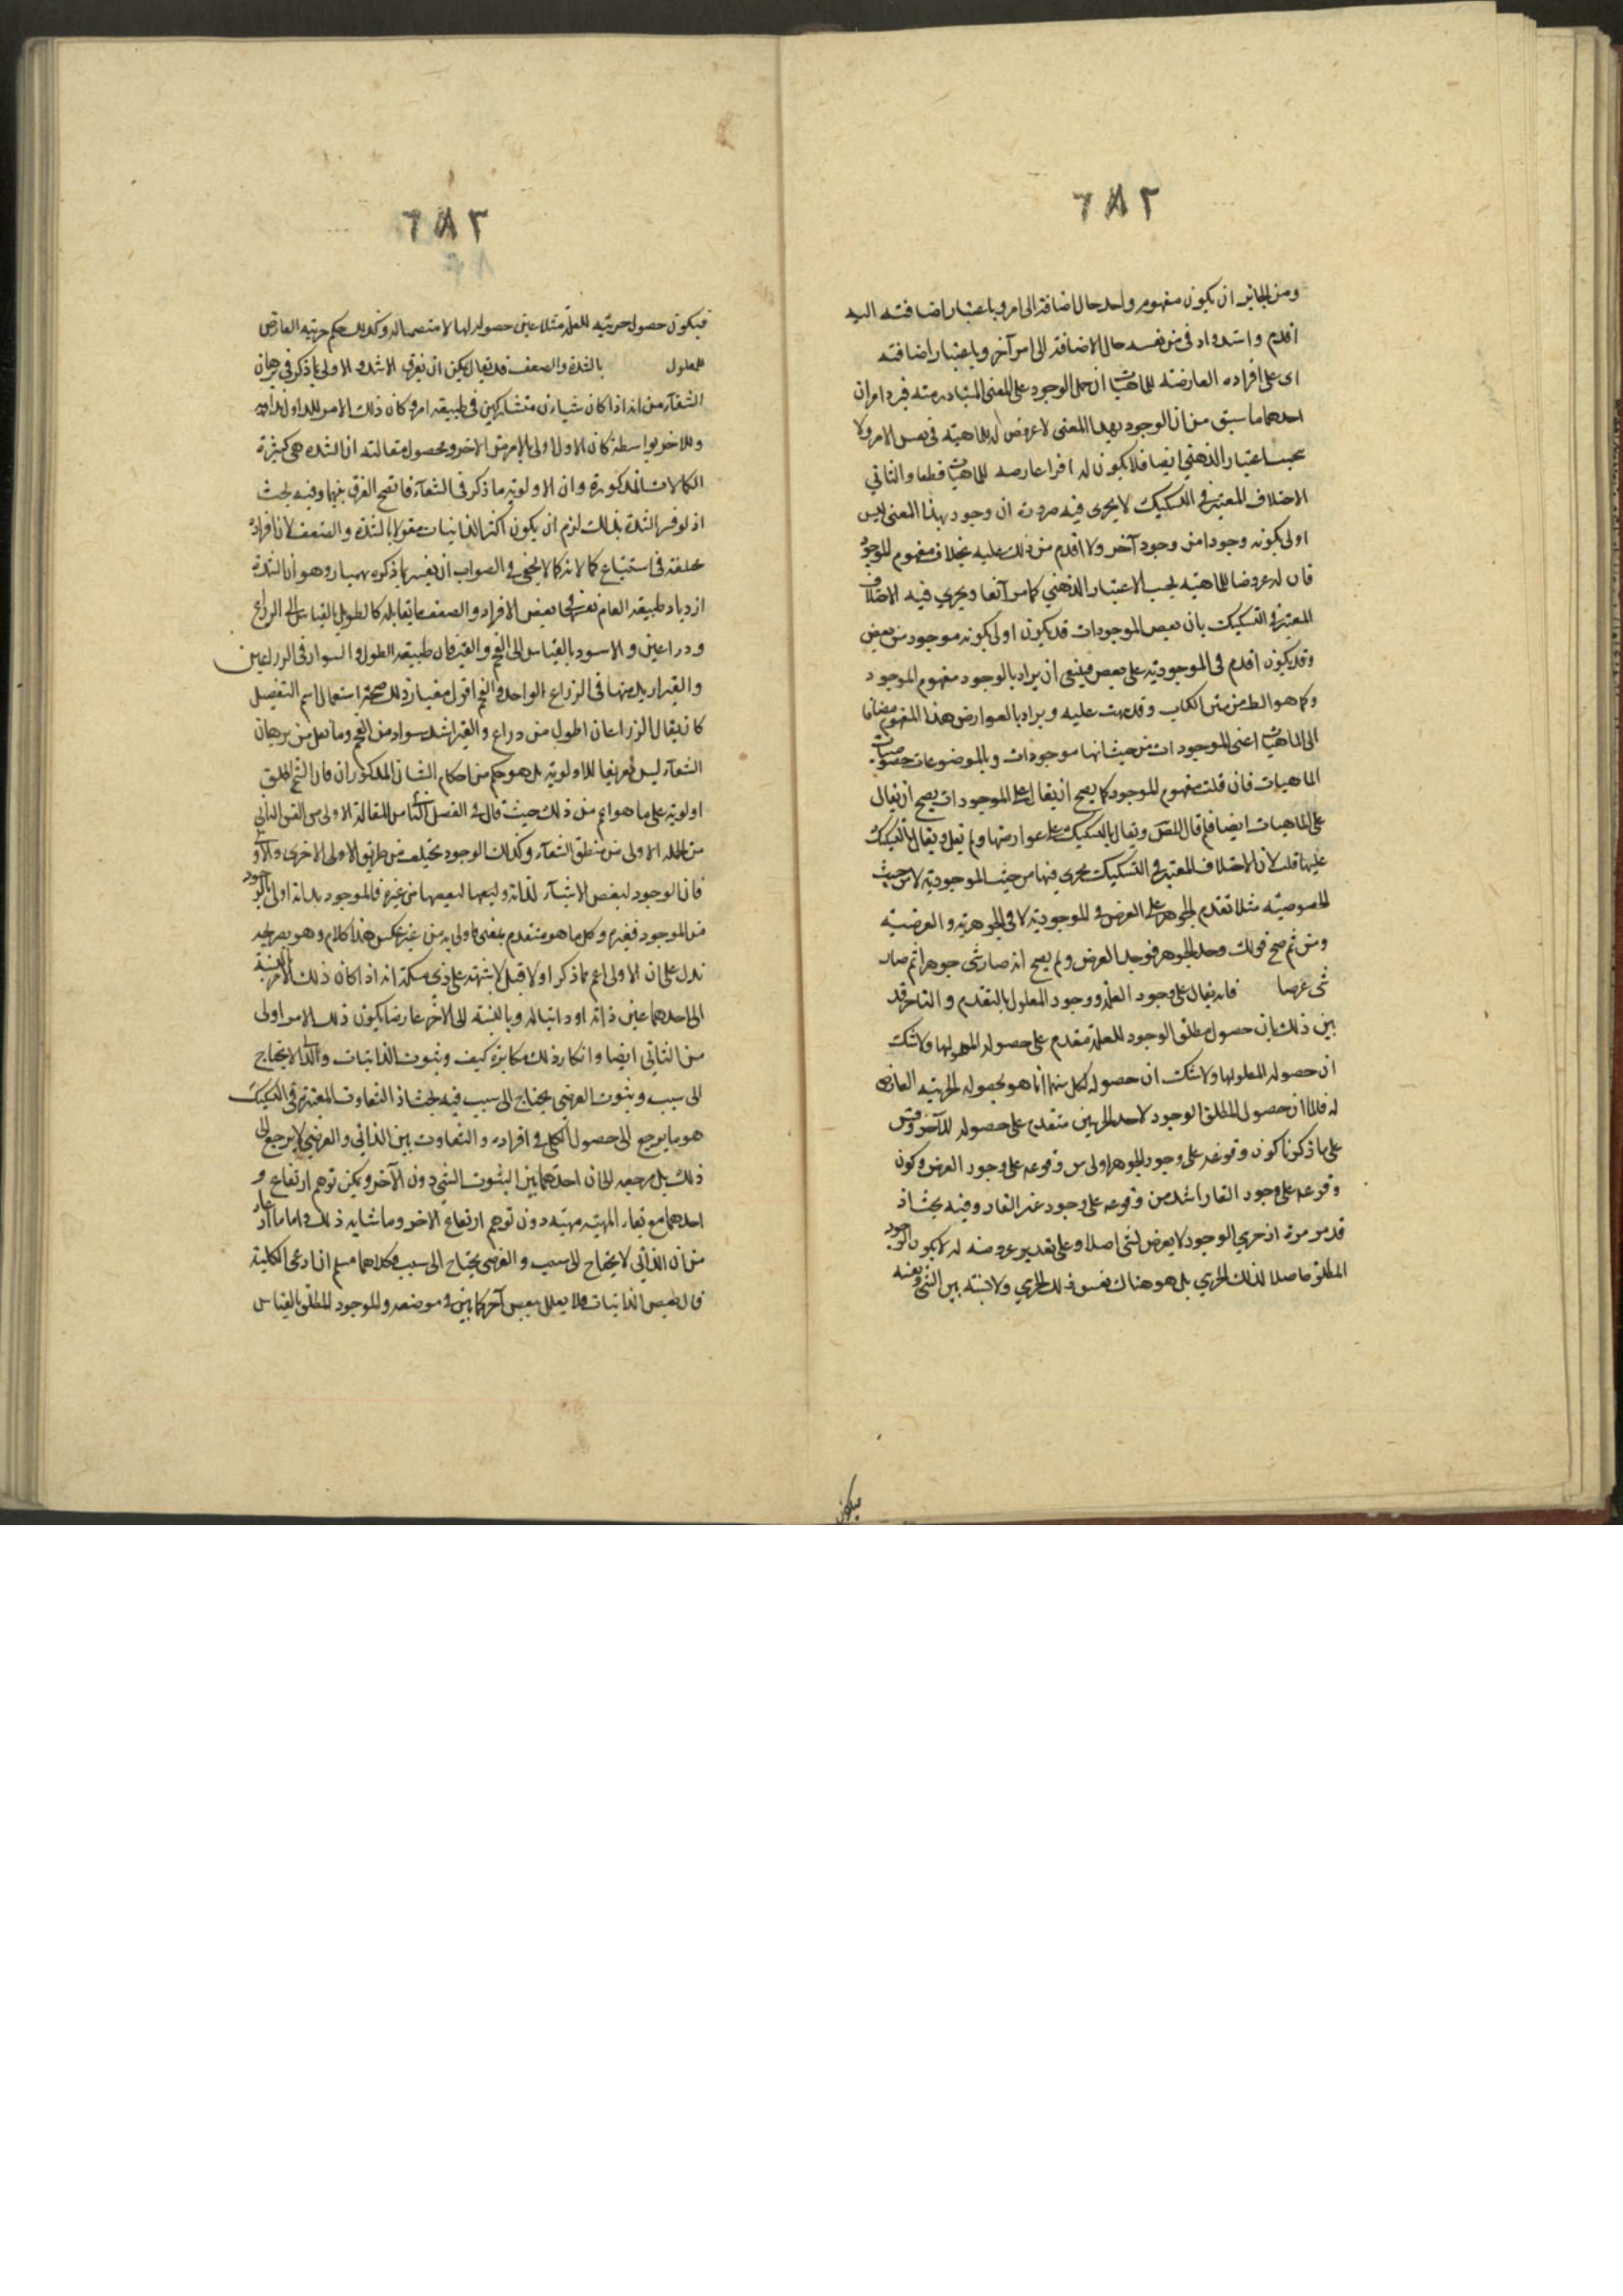 ٦٨٢
ومن الجايز ان يكون مفهوم واحد حال اضافته الى امر وباعتبار اضافته اليه
اقدم واشد واد فى من نفسه حال الاضافة الى امر آخر وباعتبار اضافته
اى على افراده العارضة للماهيات ان حمل الوجود على المعنى المتبادر منه فيرد امران
احدهما ما سبق من ان الوجود بهذا المعنى لا عروض له للماهية فى نفس الامر ولا
بحسب اعتبار الذهنى ايضا فلا يكون له افرا عارضه للماهيات قطعا والثانى
الاختلاف المعتبر فى التشكيك لا يجرى فيه ضرورة ان وجود بهذا المعنى ليس
اولى بكونه وجودا من وجود آخر ولا اقدم من ذلك عليه بخلاف مفهوم الموجود
فان له عروضا للماهية بحسب الاعتبار الذهنى كما مر آنفا ويجرى فيه الاختلاف
المعتبر فى التشكيك بان بعض الموجودات قد يكون اولى بكونه موجود من بعض
وقد يكون اقدم فى الموجودية على بعض فينبغى ان يراد بالوجود مفهوم الموجود
وكما هو الظ من متن الكتاب وقد نبهت عليه ويراد بالعوارض هذا المفهوم مضافا
الى الماهيات اعنى الموجودات من حيث انها موجودات وبالموضوعات خصوصيات
الماهيات فان قلت مفهوم الموجود كما يصح ان يقال على الموجودات يصح ان يقال
على الماهيات ايضا فلم قال المص ويقال بالتشكيك على عوارضها ولم يقل ويقال بالتشكيك
عليها قلت لان الاختلاف المعتبر فى التشكيك يجرى فيها من حيث الموجودية لا من حيث
الخصوصية مثلا تقدم الجوهر على العرض فى الموجودية لا فى الجوهرية والعرضية
ومن ثم صح قولك وجد الجوهر فوجد العرض ولم يصح انه صار شى جوهرا ثم صار
شى عرضا فانه يقال على وجود العلة ووجود المعلول بالتقدم والتاخر قد
بين ذلك بان حصول مطلق الوجود للعلة متقدم على حصوله لمعلولها ولا شك
ان حصوله لمعلولها ولا شك ان حصوله لكل منهما انما هو بحصوله لجزئيه العارض
له فلما ان حصول المطلق الوجود لاحد الجزئيين متقدم على حصوله للآخر وقس
على ما ذكرنا كون وقوعه على وجود الجوهر اولى من وقوعه على وجود العرض وكون
وقوعه على وجود القار اشد من وقوعه على وجود غير القار وفيه بحث اذ
قد مر مرة ان جزئى الوجود لا يعرض لشى اصلا وعلى تقدير عروضه له لا يكون الوجود
المطلق حاصلا لذلك الجزئى بل هو هناك نفس ذلك الجزئى ولا نسبة بين الشى ونفسه
فيكون
٦٨٢
فيكون حصول جزئيه للعلة مثلا عين حصوله لها لا مقتضيا له وكذلك حكم جزئيه العارض
للمعلول بالشدة والضعف قد يقال يمكن ان يفرق الاشد والاولى بما ذكر فى برهان
الشفآء من انه اذا كان شيئان متشاركين فى طبيعة امر وكان ذلك الامر للاول بذاته
وللاخر بواسطته كان الاول اولى بالامر من الاخر ومحصول مقالته ان الشدة هى كثرة
الكمالات المذكورة وان الاولوية ما ذكر فى الشفآء فاتضح الفرق بينهما وفيه بحث
اذ لو فسر الشدة بذلك لزم ان يكون اكثر الذاتيات مقولا بالشدة والضعف لان افراده
مختلفة فى استتباع كمالاته كما لا يخفى فالصواب ان يفسر بما ذكره بهمنيار وهو ان الشدة
ازدياد طبيعة العام نفسها فى بعض الافراد والضعف ما يقابله كالطويل بالقياس الى الذراع
وذراعين والاسود بالقياس الى الفحم والقير فان طبيعة الطول والسواد فى الذراعين
والقير ازيد منها فى الذراع الواحد والفحم اقول معيار ذلك صحة استعمال اسم التفضيل
كان يقال الذراعان اطول من ذراع والقير اشد سواد من الفحم وما نقل من برهان
الشفآء ليس تعريفا للاولوية بل هو حكم من احكام الشان المذكور ان فان الشيخ اطلق
اولوية على ما هو اعم من ذلك حيث قال فى الفصل الثانى من المقالة الاولى من الفن الثانى
من الجملة الاولى من منطق الشفآء وكذلك الوجود يختلف من طريق الاولى الاخرى والاول
فان الوجود لبعض الاشيآء لذاته ولبعضها لبعضها من غيره فالموجود بذاته اولى بالوجود
من الموجود فغيره وكل ما هو متقدم بمعنى فاولى به من غير عكس هذا كلام وهو بصريحه
تدل على ان الاولى اعم مما ذكر اولا قبل لا شبهة على ذى مسكة انه اذا كان ذلك الامر بالنسبة
الى احدهما عين ذاته او ذاتيا له وبالنسبة الى الآخر عارضا يكون ذلك الامر اولى
من الثانى ايضا وانكار ذلك مكابرة كيف وثبوت الذاتيات والذات لا يحتاج
الى سبب وثبوت العرضى يحتاج الى سبب فيه بحث اذ التفاوت المعتبر فى التشكيك
هو ما يرجع الى حصول الكلى فى افراده والتفاوت بين الذاتى والعرضى لا يرجع الى
ذلك بل مرجعه الى ان احدهما بين الثبوت للشى دون الآخر ويمكن توهم ارتفاع و
احدهما مع بقاء المهية مهية دون توهم ارتفاع الاخر وما شابه ذلك واما ما ادعاه
من ان الذاتى لا يحتاج الى سبب والعرضى يحتاج الى سبب فكلاهما مسلم ان ادعى الكلية
فان بعض الذاتيات فلا يعلل ببعض آخر كما بين فى موضعه والموجود المطلق بالقياس